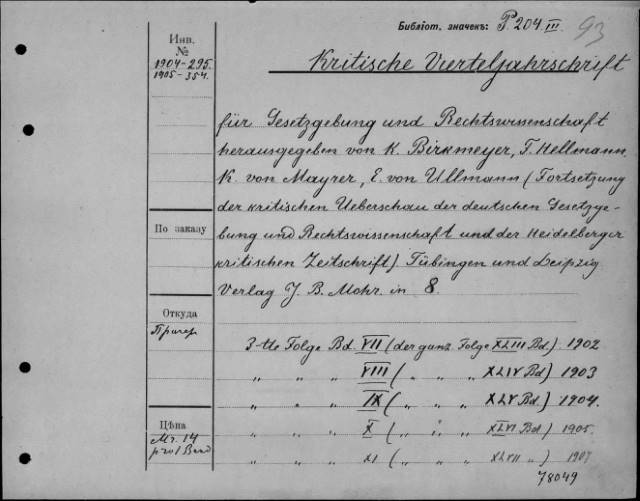 Библіот. значекъ: P 204 III. 93
Инв.
№
1904-295.
1905-354.
Kritische Vierteljahrschrift
für Gesetzgebung und Rechtswissenschaft
herausgegeben von K. Birkmeyer, F. Hellmann,
K. von Mayrer, E. von Ullmann (Fortsetzung
der kritischen Ueberschau der deutschen Gesetzge-
По заказу
bung und Rechtswissenschaft und der Heidelberger
kritischen Zeitschrift). Tübingen und Leipzig
Verlag J. B. Mohr. in 8.
Откуда
Прагер
3-tte Folge Bd. VII (der ganz. Folge XLIII Bd.) 1902
„ „ „ VIII ( „ „ „ XLIV Bd.) 1903
„ „ „ IX ( „ „ „ XLV Bd.) 1904.
Цѣна
Mr. 14
pro 1 Band
„ „ „ X ( „ „ „ XLVI Bd.) 1905.
„ „ „ XI ( „ „ „ XLVII „ ) 1907
78049